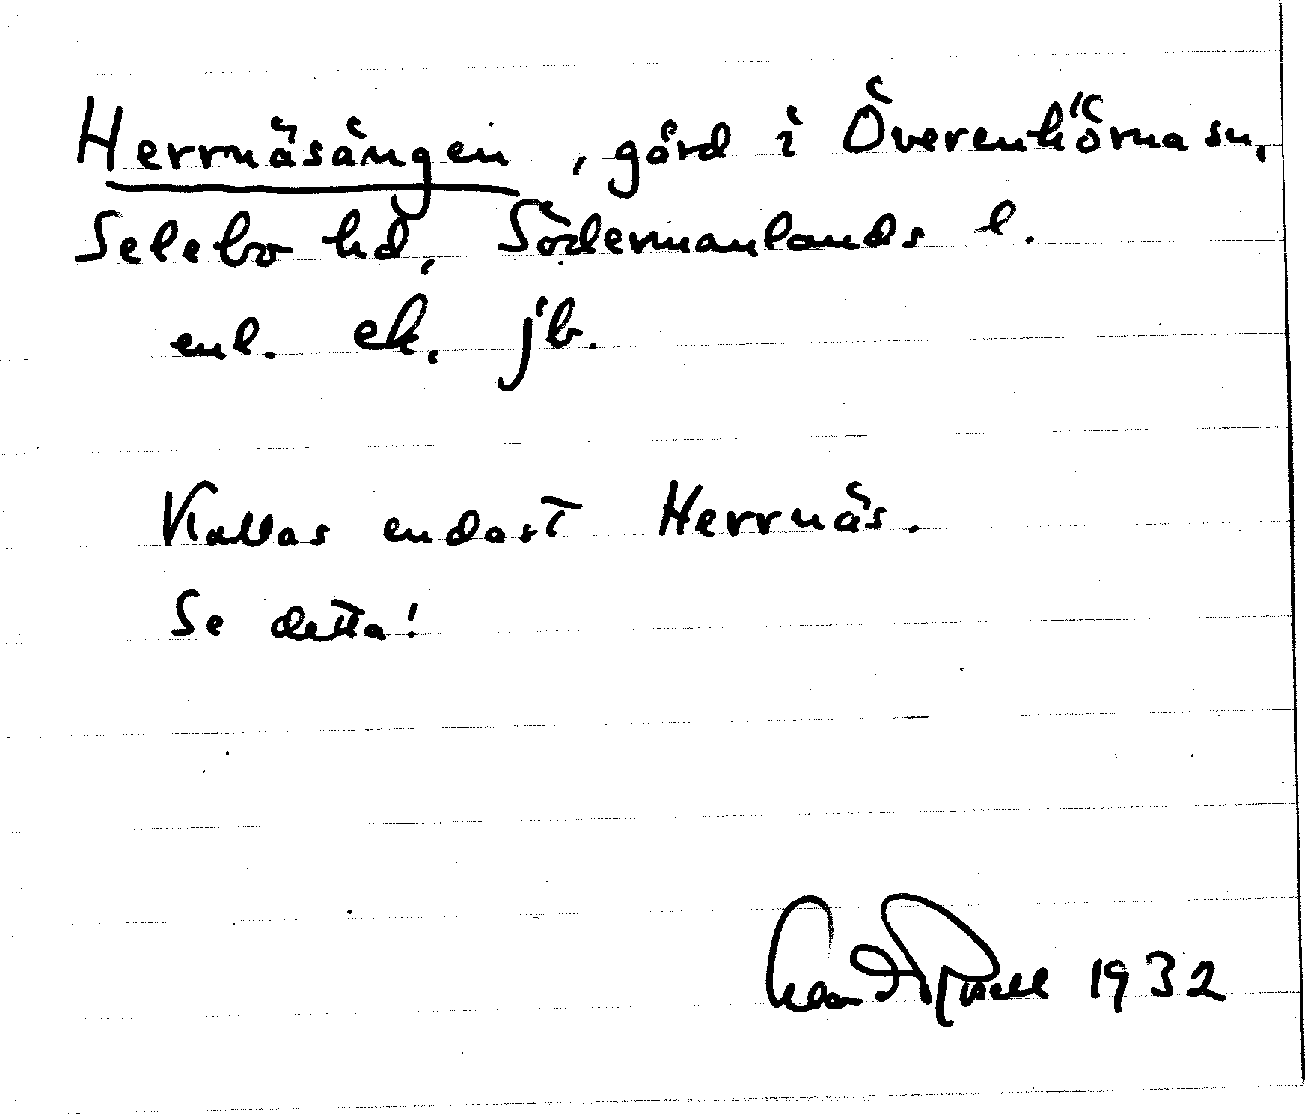 Herrnäsängen, gård i Överenhörna sn,
Selebo hd, Södermanlands l.
enl. ek. jb.
Kallas endast Herrnäs.
Se detta!
1932